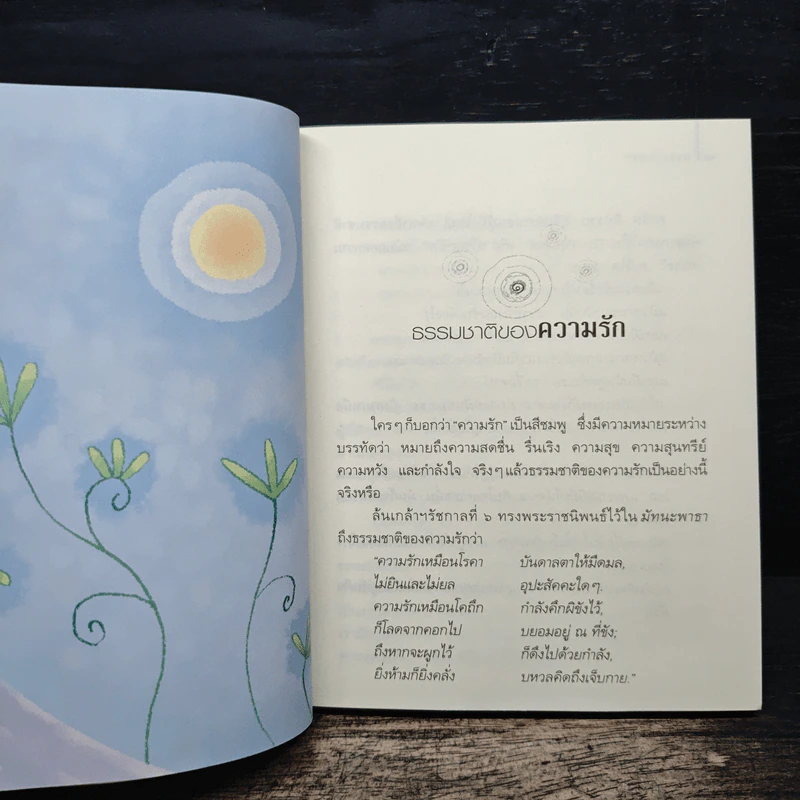 ธรรมชาติของความรัก
ใคร ๆ ก็บอกว่า “ความรัก” เป็นสีชมพู ซึ่งมีความหมายระหว่าง
บรรทัดว่า หมายถึงความสดชื่น รื่นเริง ความสุข ความสุนทรีย์
ความหวัง และกำลังใจ จริง ๆ แล้วธรรมชาติของความรักเป็นอย่างนี้
จริงหรือ
ล้นเกล้าฯรัชกาลที่ ๖ ทรงพระราชนิพนธ์ไว้ใน มัทนะพาธา
ถึงธรรมชาติของความรักว่า
“ความรักเหมือนโรคา บันดาลตาให้มืดมล,
ไม่ยินและไม่ยล อุปะสัคคะใด ๆ.
ความรักเหมือนโคถึก กำลังคึกผิขังไว้,
ก็โลดจากคอกไป บยอมอยู่ ณ ที่ขัง;
ถึงหากจะผูกไว้ ก็ดึงไปด้วยกำลัง,
ยิ่งห้ามก็ยิ่งคลั่ง บหวลคิดถึงเจ็บกาย.”